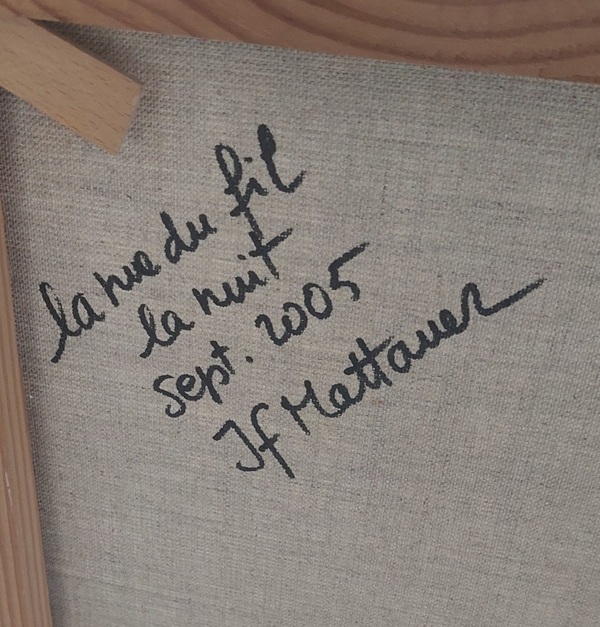 la rue du fil
la nuit
sept. 2005
Jf Mattauer